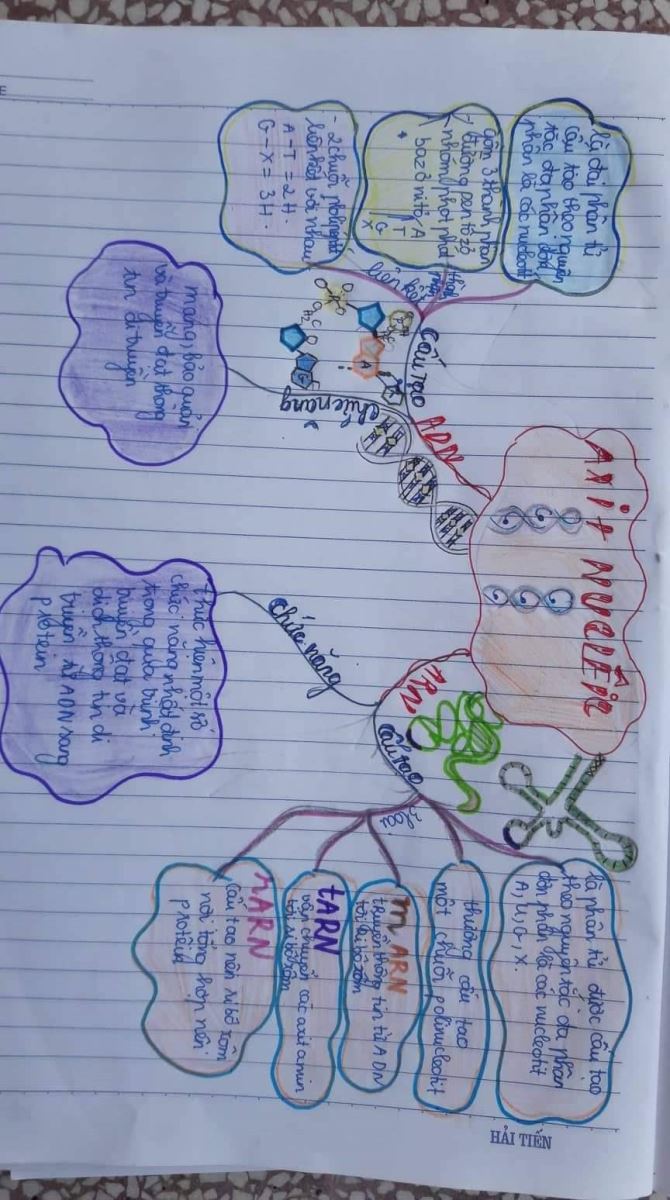 Axit Nuclêic
ADN
Cấu tạo
là đại phân tử
cấu tạo theo nguyên
tắc đa phân đơn
phân là các nucleotit
gồm 3 thành phần
đường pentôzơ
nhóm photphat
+ bazơ nitơ A
T
G
X
- 2 chuỗi polinu
liên kết với nhau
A - T = 2H.
G - X = 3H.
chức năng
mang, bảo quản
và truyền đạt thông
tin di truyền
ARN
Cấu tạo
là phân tử được cấu tạo
theo nguyên tắc đa phân
đơn phân là các nucleotit
A, U, G, X.
thường cấu tạo
một chuỗi polinucleotit
loại
mARN
truyền thông tin từ ADN
tới ribôxôm
tARN
vận chuyển các axit amin
tới ribôxôm
rARN
cấu tạo nên ribôxôm
nơi tổng hợp nên
protein
chức năng
thực hiện một số
chức năng nhất định
trong quá trình
truyền đạt và
dịch thông tin di
truyền từ ADN sang
protein
HẢI TIẾN